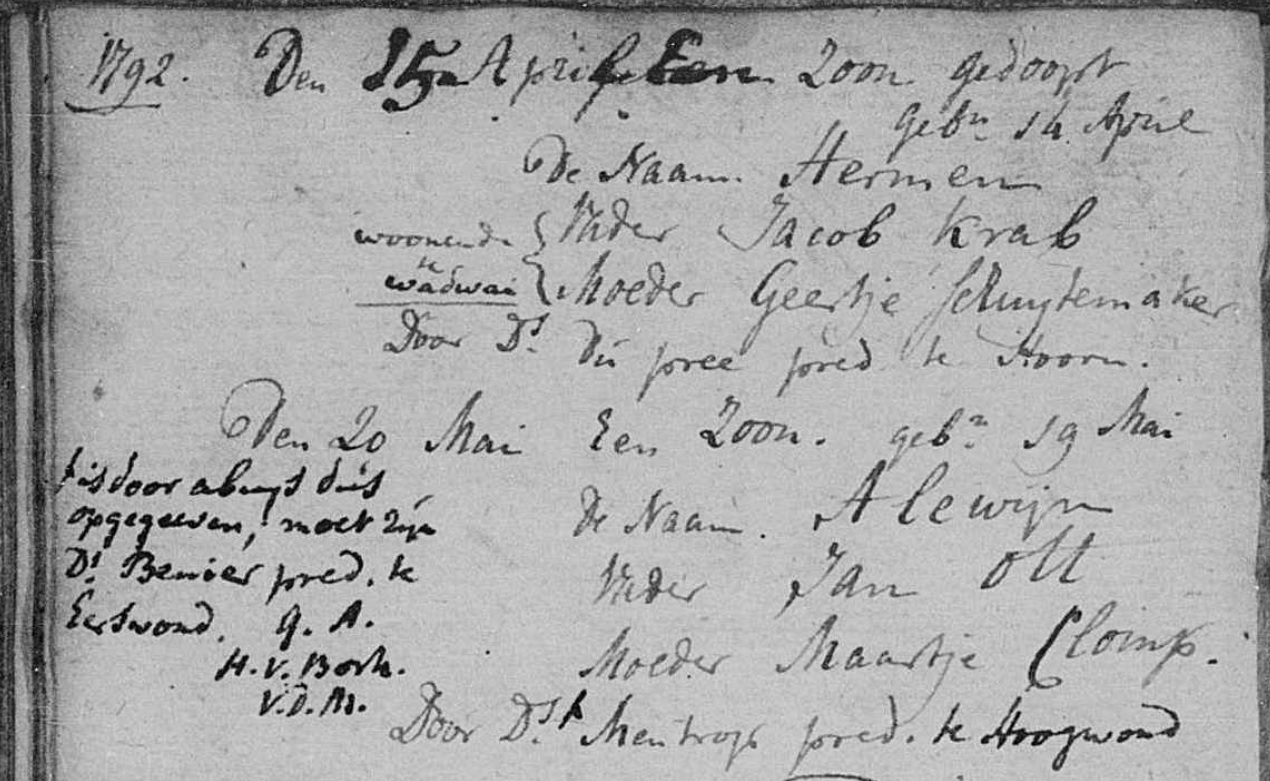 1792. Den 15en April Een Zoon gedoopt
gebn 14 April
De Naam. Hermen
woonende { Vader Jacob Krab
te
wadwai { Moeder Geertje Schuytemaker
Door Ds. du pree pred te Hoorn.
Den 20 Mai Een Zoon. gebn 19 Mai
de Naam. Alewijn
Vader Jan Ott
Moeder Maartje Clomp.
Door Ds. † Mentrop pred. te Hoogwoud
† is door abuys dus
opgegeeven, moet zijn
Ds. Benier pred. te
Eertswoud. G. A.
H. V. Bork.
V. D. M.